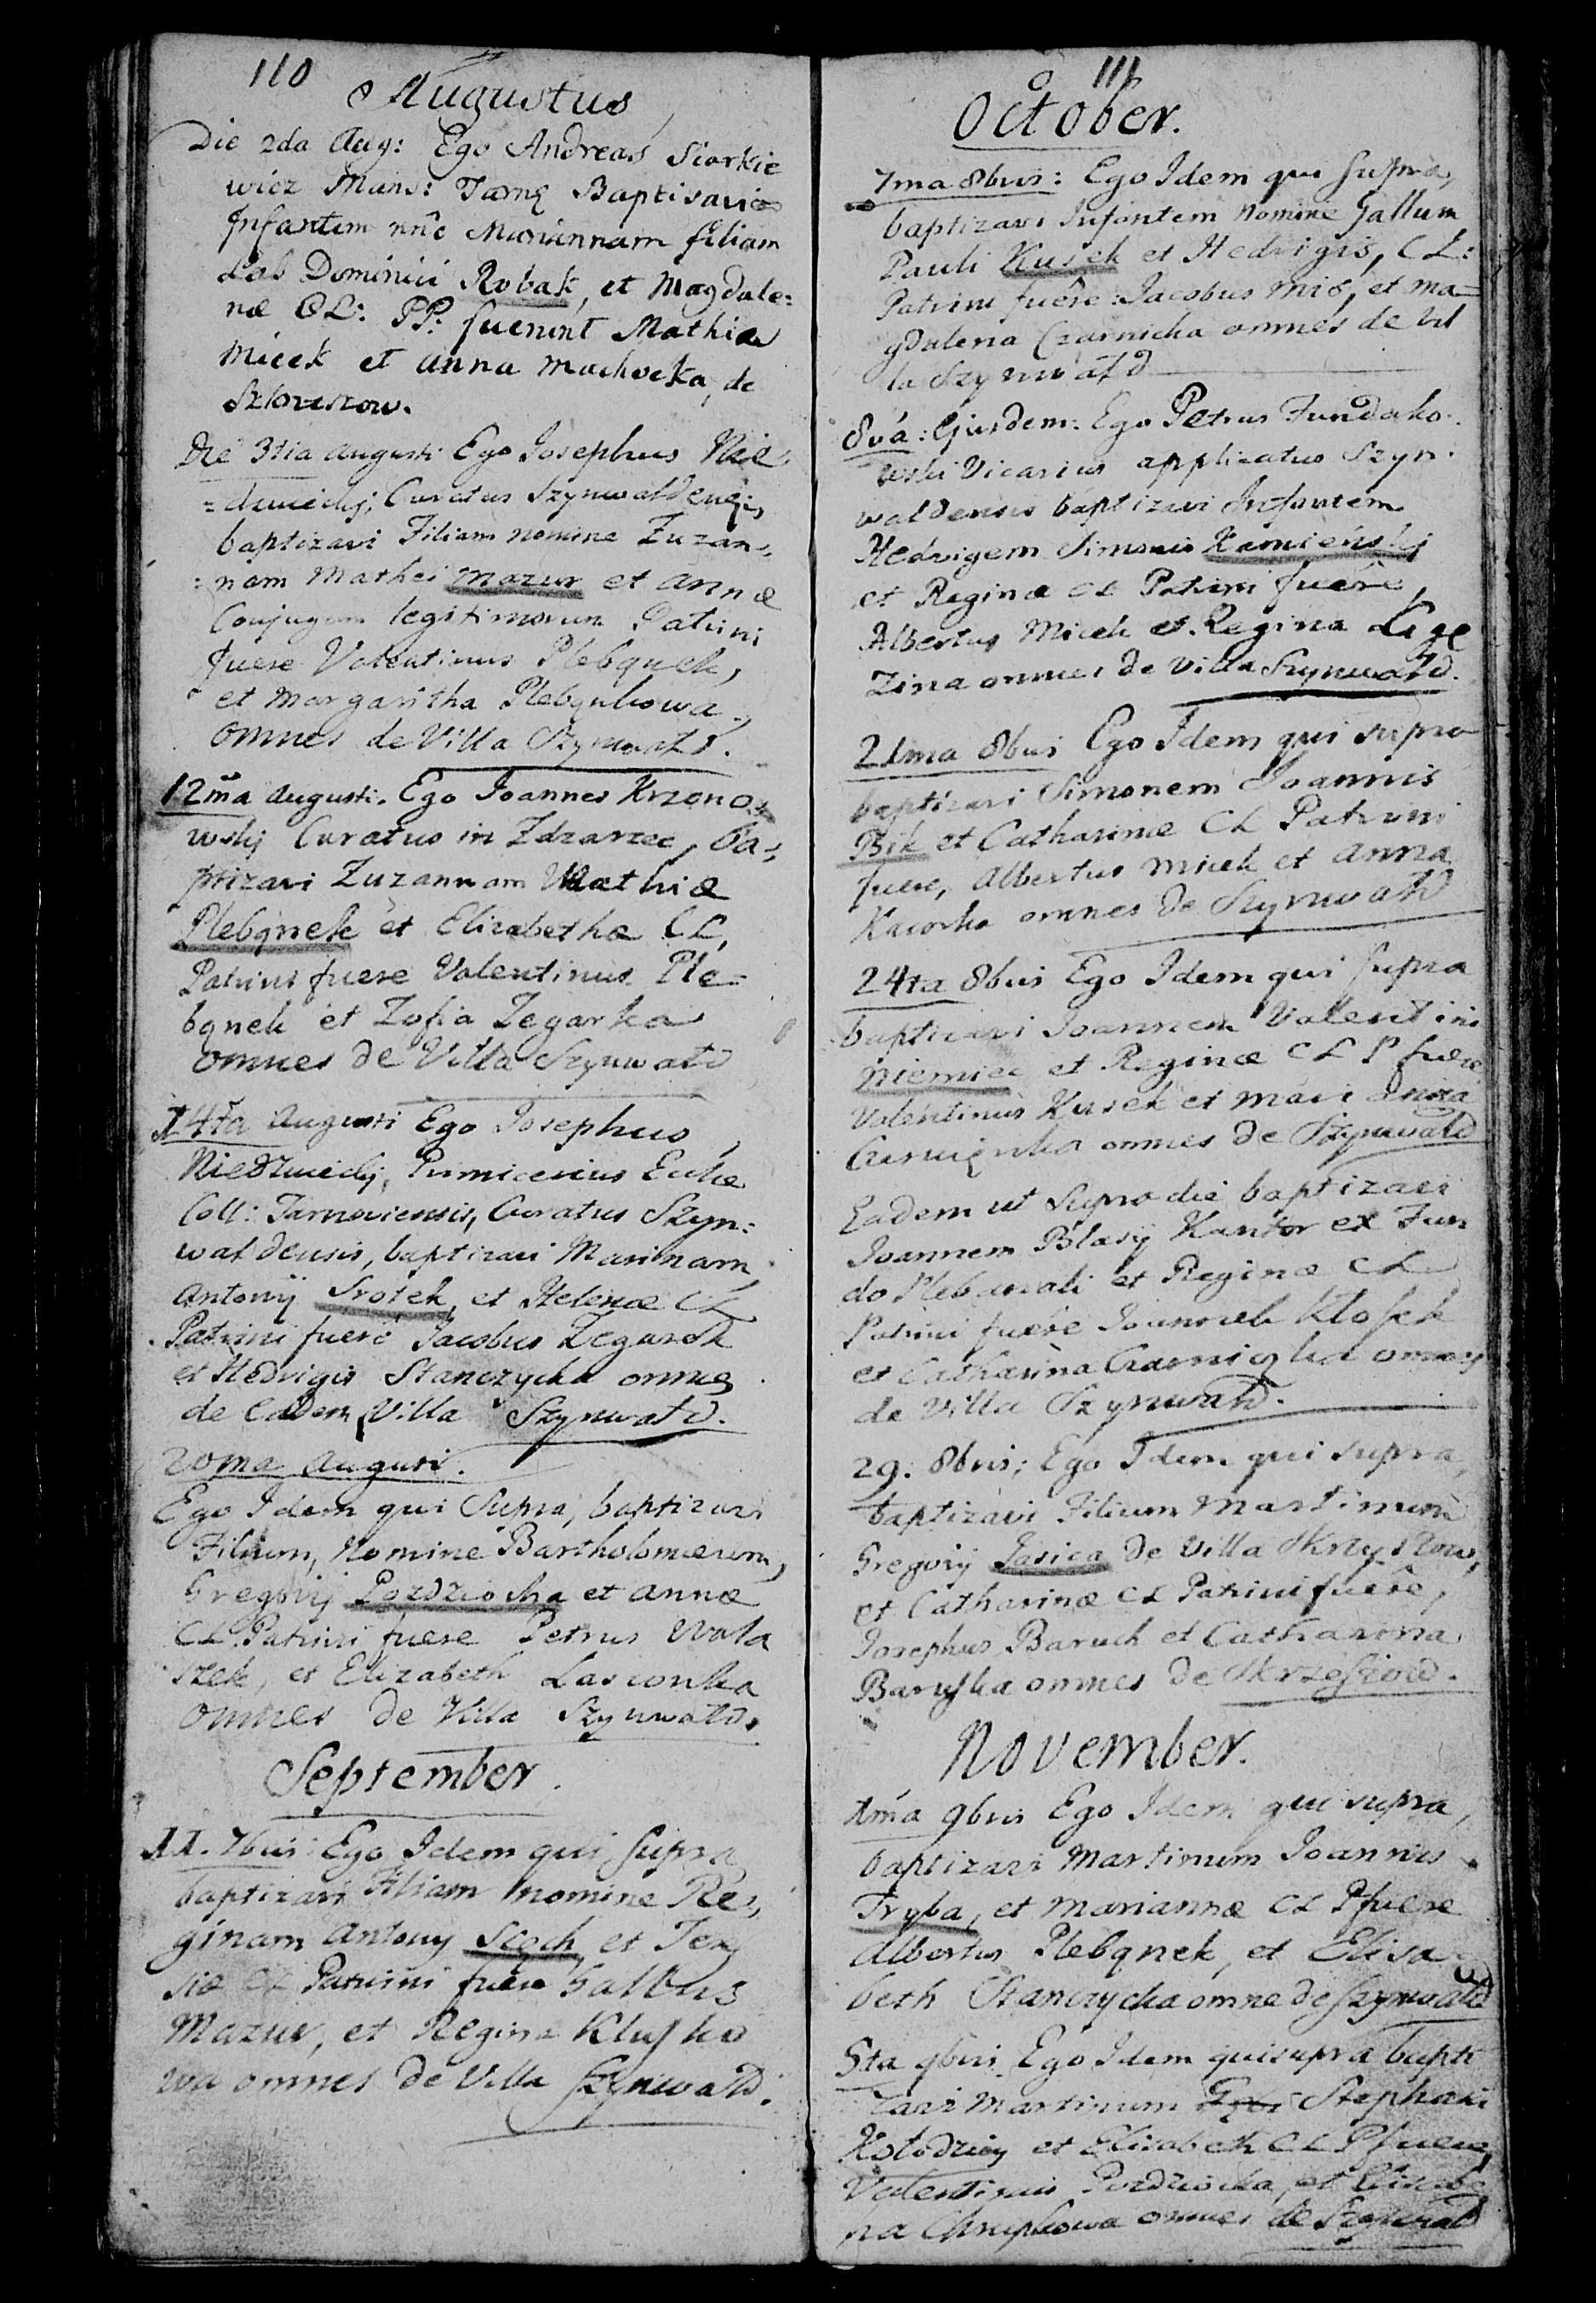 110
Augustus
Die 2da Aug: Ego Andreas Siarkie
wicz Mans: Tarnę Baptisavi
Infantem nn̂e Mariannam filiam
Lab Dominici Robak, et Magdale:
næ CL: PP: fuerunt Mathias
Micek et Anna Machocka, de
Skrzeszow.
Die 3tia Augusti Ego Josephus Nie
=dzwiedzj, Curatus Szynwaldensis,
baptizavi Filiam nomine Zuzan=
=nam Mathei Mazur et Annæ
Conjugum legitimorum Patrini
fuere Valentinus Plebąnek,
et Margaritha Plebąnkowa,
omnes de Villa Szynwald.
12ma Augusti. Ego Joannes Krzono=
wskij Curatus in Zdzarzec, ba=
ptizavi Zuzannam Mathiæ
Plebąnek et Elizabethæ CL,
Patrini fuere Valentinus Ple=
bąnek et Zofia Zegarka
omnes de Villa Szynwald
14ta Augusti Ego Josephus
Niedzwiedzj, Primicerius Eccliæ
Coll: Tarnoviensis, Curatus Szyn=
waldensis, baptizavi Marinam
Antonij Srotek, et Helenæ CL
Patrini fuere Jacobus Zegarek
et Hedvigis Stanczycka omnes
de Eadem Villa Szynwald.
20ma Augusti.
Ego Idem qui Supra, baptizavi
Filium, Nomine Bartholomæum,
Gregorij Pozdziocha et Annæ
CL Patrini fuere Petrus Wala
szek, et Elizabeth Lasconka
omnes de Villa Szynwald.
September.
11. 7bris Ego Idem qui Supra
baptizavi Filiam nomine Re=
ginam Antony Stach et Tere
siæ CL Patrini fuere Gallus
Mazur, et Regina Klusko
wa omnes de Villa Szynwald.
111
October.
7ma 8bris: Ego Idem qui Supra,
baptizavi Infantem Nomine Gallum
Pauli Kusek et Hedvigis, CL:
Patrini fuêre: Jacobus Mis, et Ma=
gdalena Czarnicka omnes de Vil
la Szynwald
8va: Ejusdem: Ego Petrus Fundako
wski Vicarius applicatus Szyn
waldensis baptizavi Infantem
Hedvigem Simonis Kamienskj
et Reginæ CL Patrini fuêre,
Albertus Micek et Regina Łige
Zina omnes de Villa Szynwald.
21ma 8bris Ego Idem qui supra
baptizavi Simonem Joannis
Bik et Catharinæ CL Patrini
fuere, Albertus Micek et Anna
Kaiorka omnes de Szynwald
24ta 8bris Ego Idem qui supra
baptizavi Joannem Valentini
Niemiec et Reginæ CL P fuere
Valentinus Kusek et Mari Anna
omnes de Szynwald
Eadem ut Supra die baptizavi
Joannem Blasij Kantor ex Fun
do Plebanali et Reginæ CL
Patrini fuere Joannes Klosek
et Catharina omnes
de Villa Szynwald.
29. 8bris; Ego Idem qui supra,
baptizavi Filium Martinum
Gregorij Jasica de Villa Skrzyszow,
et Catharinæ CL Patrini fuêre,
Josephus Baruch et Catharina
Baruska omnes de Skrzeszow.
November.
1ma 9bris Ego Idem qui supra,
baptizavi Martinum Joannis
Tryba, et Mariannæ CL P fuere
Albertus Plebąnek, et Elisa
beth Stanczycka omnes de Szynwald
5ta 9bris Ego Idem qui supra bapti
zavi Martinum Stephani
Kołodziey et Elisabeth CL P fuere
Valentinus Pozdziocha, et
Chrupkowa omnes de Szynwald